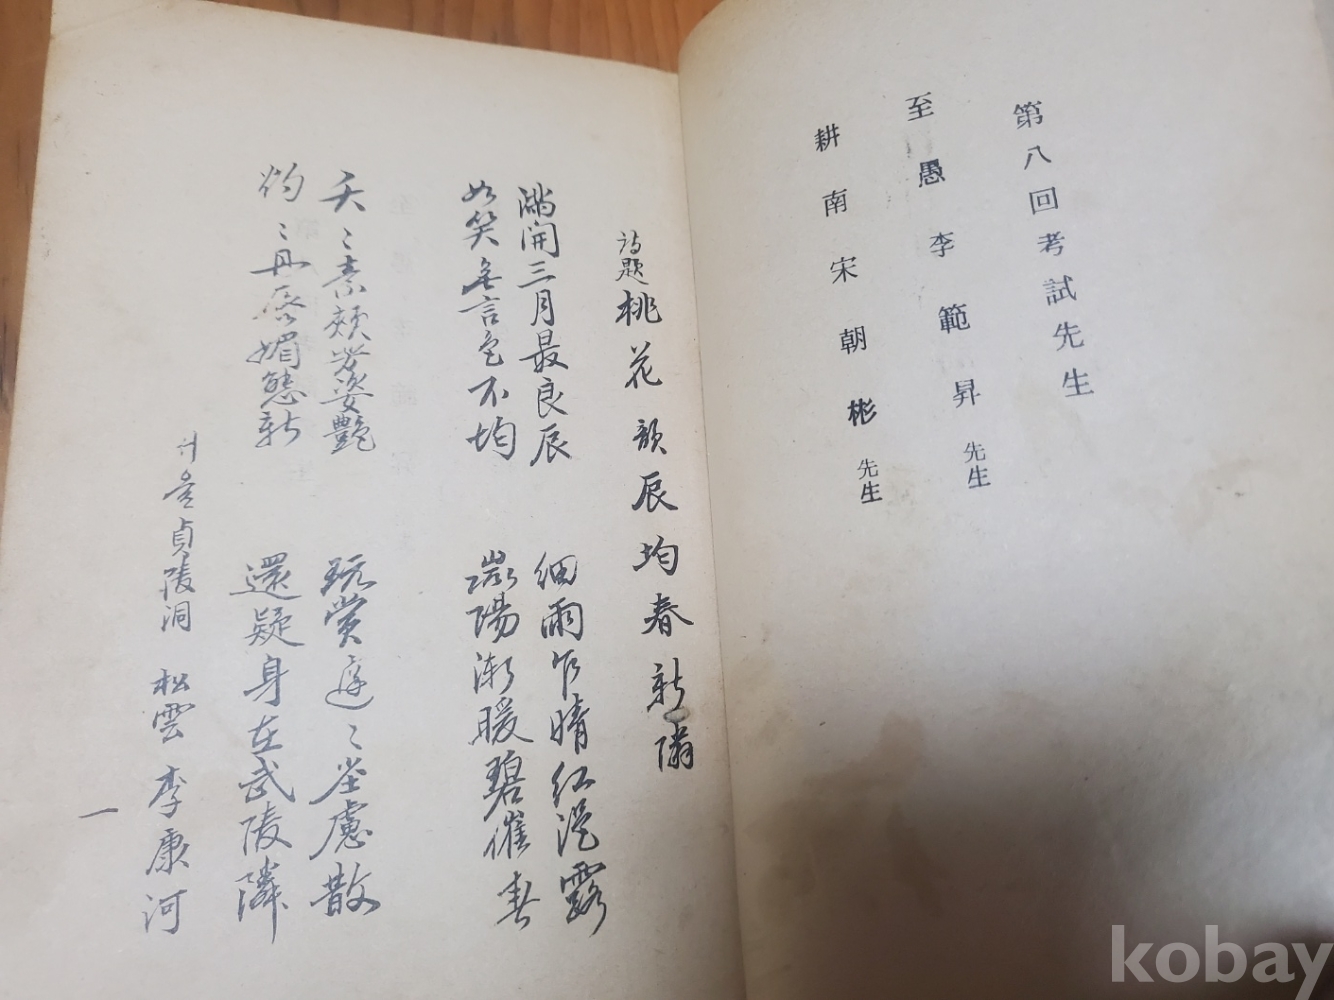 第八回考試先生
至愚李範昇先生
耕南宋朝彬先生
詩題桃花 韻辰均春新隣
滿開三月最良辰 細雨乍晴紅浥露
如笑無言色不均 微陽漸暖碧催春
夭〻素頰姿艶 玩賞遲〻慮散
灼〻丹唇媚態新 還疑身在武陵隣
서울貞陵洞 松雲 李康河
一
kobay